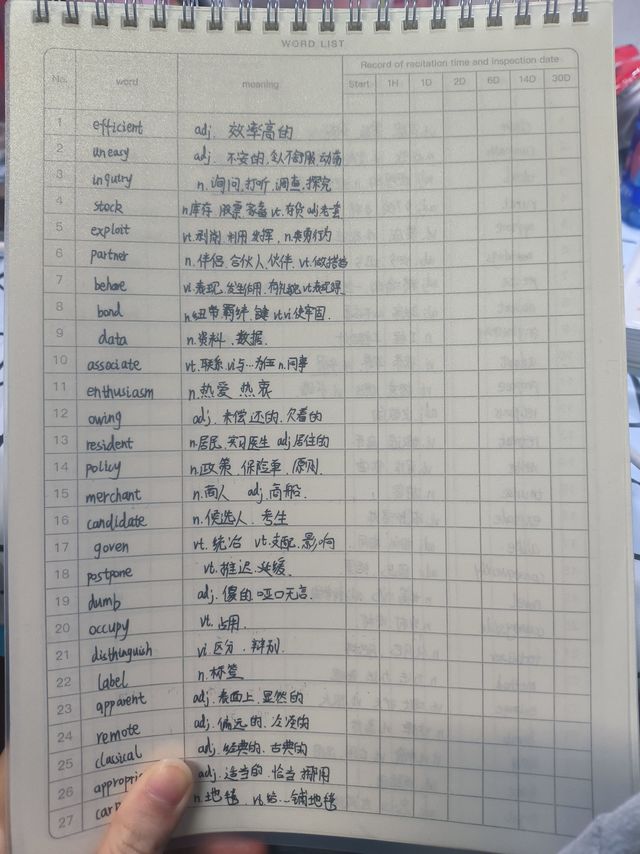 WORD LIST
No. word meaning Record of recitation time and inspection date
Start 1H 1D 2D 6D 14D 30D
1 efficient adj. 效率高的
2 uneasy adj. 不安的,令人不舒服,
3 inquiry n.询问,打听,调查,探究
4 stock n.库存 股票 家畜 vt.存货 adj.老套
5 exploit vt.剥削 利用 发挥, n.英勇行为
6 partner n.伴侣.合伙人.伙伴. vt.做搭档
7 behave vi.表现.发生作用.有礼貌 vt.
8 bond n.纽带 羁绊. 键 vt.vi使牢固.
9 data n.资料.数据.
10 associate vt.联系 vi与…为伍 n.同事
11 enthusiasm n.热爱 热衷
12 owing adj. 未偿还的.欠着的
13 resident n.居民,实习医生 adj居住的
14 policy n.政策.保险单.原则.
15 merchant n.商人 adj.商船.
16 candidate n.候选人.考生
17 goven vt.统治 vt.支配.影响
18 postpone vt.推迟.
19 dumb adj.傻的.哑口无言.
20 occupy vt.占用.
21 disthinguish vi.区分.辩别.
22 label n.标签
23 apparent adj.表面上.显然的
24 remote adj.偏远的.
25 classical adj.经典的.古典的
26 adj.适当的.恰当 挪用
27 n.地毯. vt.给…铺地毯